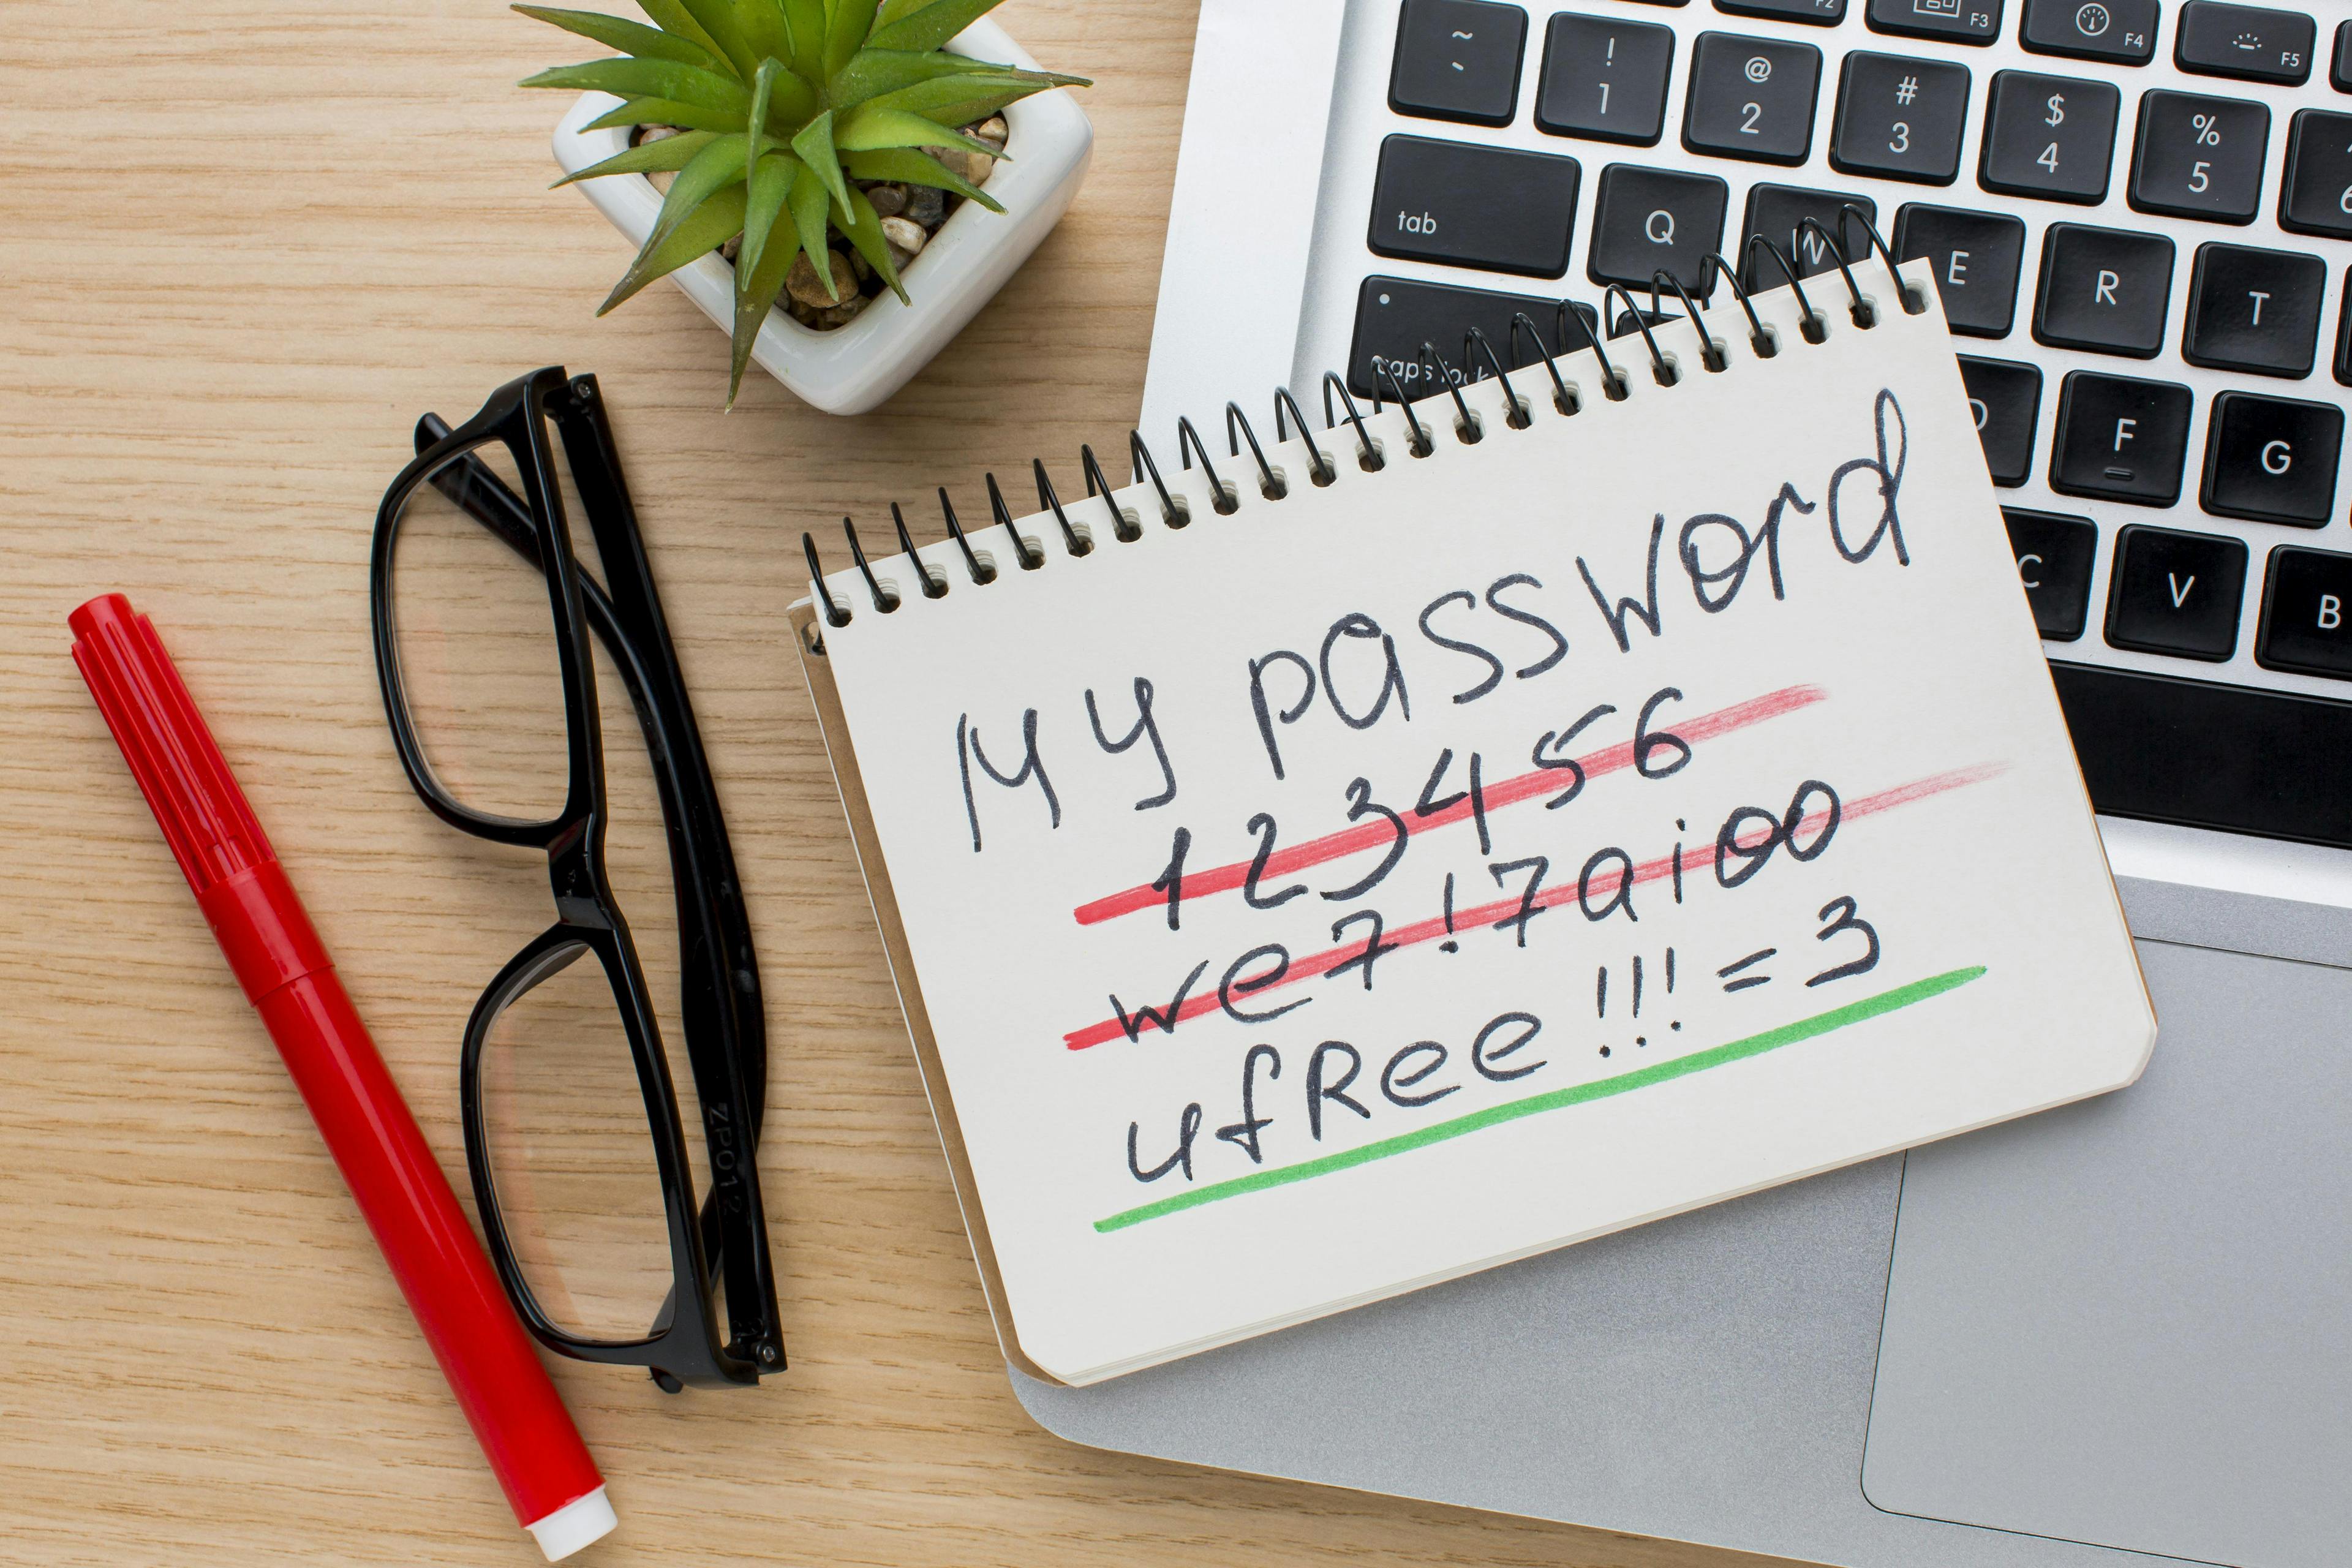 F2 F3 F4 F5
~ ! @ # $ %
` 1 2 3 4 5 6
tab Q W E R T
caps lock D F G
C V B
My password
123456
we7!7aioo
ufRee!!!=3
ZP012